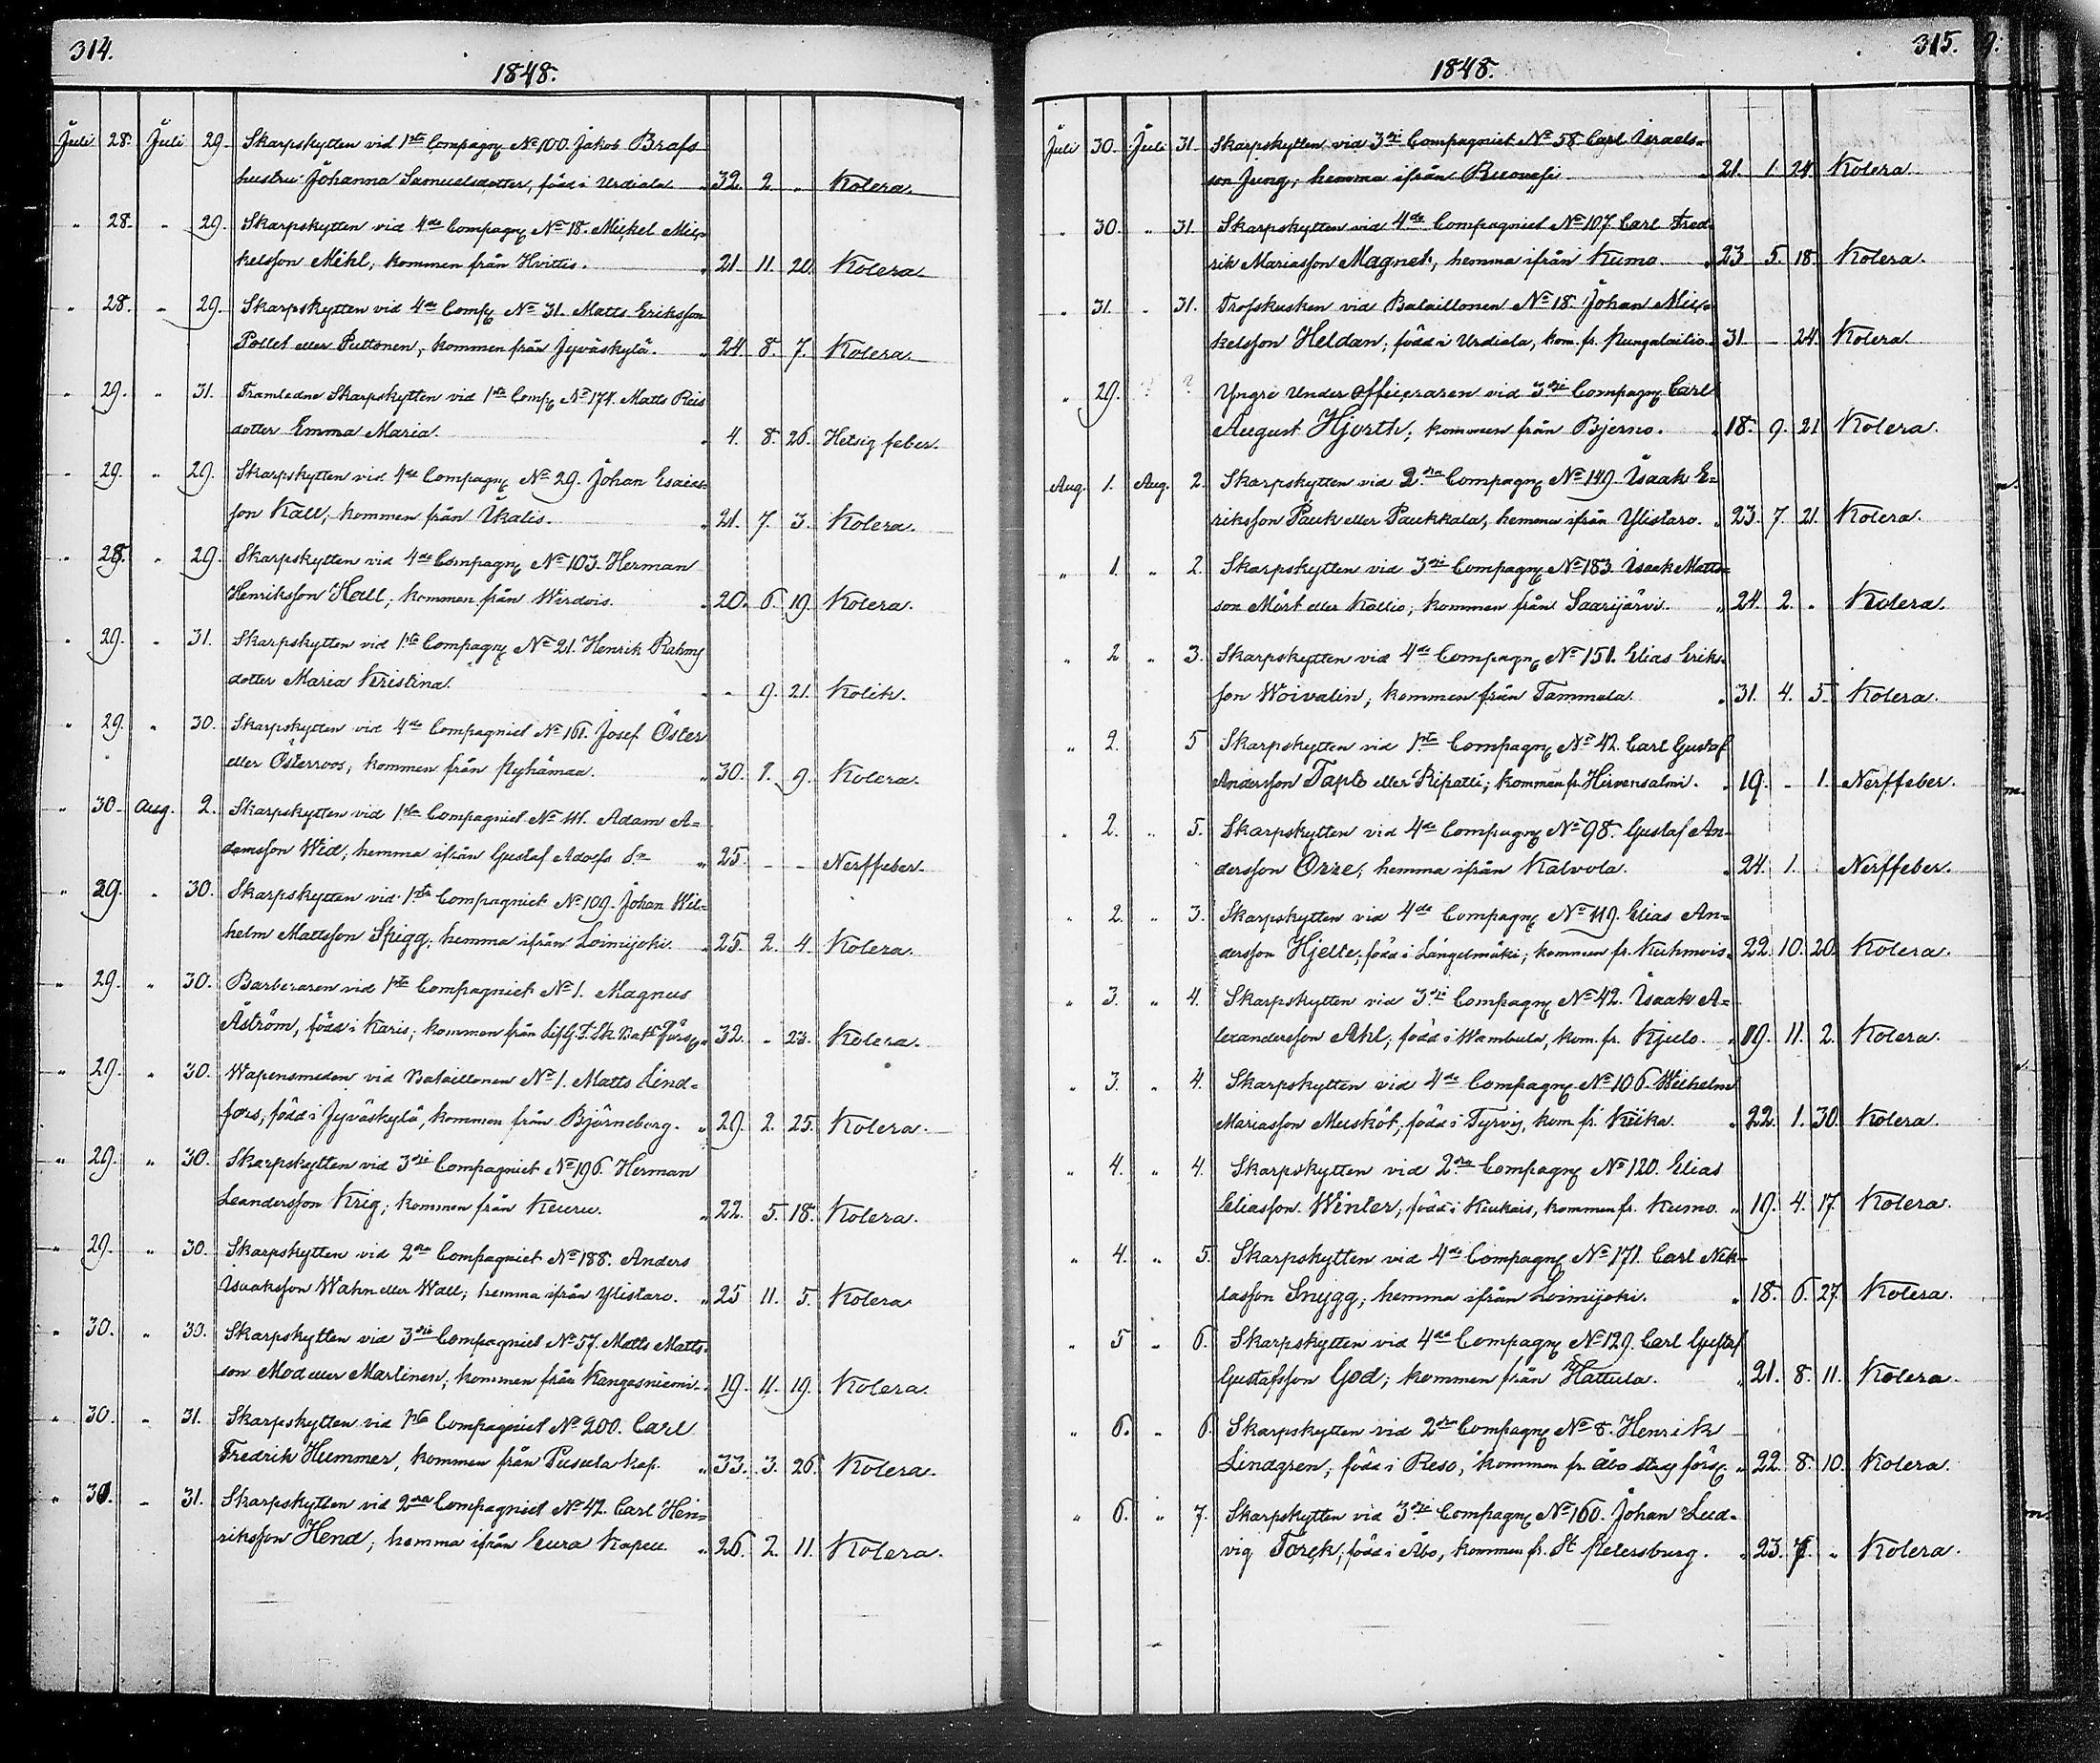 314.
1848.
Juli 28. Juli 29. Skarpskytten vid 1sta Compagn. No 100. Jakob Brafs
hustru Johanna Samuelsdotter, född i Urdiala „ 32. 2. „ Kolera.
„ 28. „ 29. Skarpskytten vid 4de Compagn. No 18. Mickel Mic-
kelsson Mehl, kommen från Hvittis. „ 21. 11. 20. Kolera
„ 28. „ 29. Skarpskytten vid 4de Comp. No 31. Matts Eriksson
Pollet eller Puttonen, kommen från Jyväskylä. „ 24. 8. 7. Kolera
„ 29. „ 31. Framledne Skarpskytten vid 1sta Comp. No 174. Matts Reis
dotter Emma Maria. „ 4. 8. 26. Hetsig feber.
„ 29. „ 29. Skarpskytten vid 4de Compagn. No 29. Johan Esaias-
son Kall, kommen från Ikalis. „ 21. 7. 3. Kolera.
„ 28. „ 29. Skarpskytten vid 4de Compagn. No 103. Herman
Henriksson Hall, kommen från Wirdois. „ 20. 6. 19. Kolera.
„ 29. „ 31. Skarpskytten vid 1sta Compagn. No 21. Henrik Rahms
dotter Maria Kristina. „ „ 9. 21. Kolik.
„ 29. „ 30. Skarpskytten vid 4de Compagniet No 161. Josef Öster
eller Österroos, kommen från Pyhämaa. „ 30. 1. 9. Kolera.
„ 30. Aug. 2. Skarpskytten vid 1sta Compagniet No 111. Adam A-
damsson Wid, hemma ifrån Gustaf Adolfs Sn „ 25. – – Nerffeber.
„ 29. „ 30. Skarpskytten vid 1sta Compagniet No 109. Johan Wil-
helm Mattsson Spigg, hemma ifrån Loimijoki. „ 25. 2. 4. Kolera.
„ 29. „ 30. Barberaren vid 1sta Compagniet No 1. Magnus
Åström, född i Karis; kommen från „ 32. „ 23. Kolera.
„ 29. „ 30. Wapensmeden vid Bataillonen No 1. Matts Lind-
fors, född i Jyväskylä, kommen från Björneborg. „ 29. 2. 25. Kolera.
„ 29. „ 30. Skarpskytten vid 3dje Compagniet No 196. Herman
Leandersson Krig, kommen från Keuru. „ 22. 5. 18. Kolera.
„ 29. „ 30. Skarpskytten vid 2dra Compagniet No 188. Anders
Isaaksson Wahn eller Wall, hemma ifrån Ylistaro. „ 25 11. 5. Kolera
„ 30. „ 30. Skarpskytten vid 3dje Compagniet No 57. Matts Matts-
son Mod eller Martinen, kommen från Kangasniemi. „ 19. 4. 19. Kolera.
„ 30. „ 31. Skarpskytten vid 1sta Compagniet No 200. Carl
Fredrik Hummer, kommen från Pusula kap. „ 33. 3. 26. Kolera.
„ 30. „ 31. Skarpskytten vid 2dra Compagniet No 42. Carl Hen-
riksson Hend, hemma ifrån Eura Kapell „ 26. 2. 11. Kolera.
315.
1848.
Juli 30. Juli 31. Skarpskytten vid 3dje Compagniet No 58. Carl Israels-
son Jung, hemma ifrån Ruovesi. „ 21. 1. 24. Kolera.
„ 30. „ 31. Skarpskytten vid 4de Compagniet No 107. Carl Fred-
rik Mariasson Magnet, hemma ifrån Kumo. „ 23. 5. 18. Kolera.
„ 31. „ 31. Trosskusken vid Bataillonen No 18. Johan Mic-
kelsson Heldan, född i Urdiala, kom. fr. Pungalaitio „ 31. – 24. Kolera
„ 29. ? ? Yngre Under Officeraren vid 3dje Compagn. Carl
August Hjorth, kommen från Bjerno. „ 18. 9. 21. Kolera.
Aug. 1. Aug. 2. Skarpskytten vid 2dra Compagn. No 149. Isaak E-
riksson Pauk eller Paukkala, hemma ifrån Ylistaro. „ 23. 7. 21. Kolera.
„ 1. „ 2. Skarpskytten vid 3dje Compagn. No 183. Isaak Matts-
son Mört eller Kallio, kommen från Saarijärvi. „ 24. 2. „ Kolera.
„ 2 „ 3. Skarpskytten vid 4de Compagn. No 151. Elias Eriks-
son Woivalin, kommen från Tammela. „ 31. 4. 5. Kolera.
„ 2. 5 Skarpskytten vid 1sta Compagn. No 42. Carl Gustaf
Andersson Tapto eller Ripatti, kommen fr. Hirvensalmi. „ 19. „ 1. Nerffeber.
„ 2. „ 5. Skarpskytten vid 4de Compagn. No 98. Gustaf An-
dersson Orre, hemma ifrån Kalvola. „ 24. 1. Nerffeber.
„ 2. „ 3. Skarpskytten vid 4de Compagn. No 119. Elias An-
dersson Hjelte, född i Längelmäki, kommen fr. Kuhmois. 22. 10. 20. Kolera.
„ 3. „ 4. Skarpskytten vid 3dje Compagn. No 42. Isaak A-
lexandersson Ahl, född i Wambula, kom. fr. Kjulo. „ 19. 11. 2. Kolera.
„ 3. „ 4. Skarpskytten vid 4de Compagn. No 106. Wilhelm
Mariasson Musköt, född i Tyrvis, kom fr. Kiika. „ 22. 1. 30. Kolera.
„ 4. „ 4. Skarpskytten vid 2dra Compagn. No 120. Elias
Eliasson Winter, född i Kiukais, kommen fr. Kumo. „ 19. 4. 17. Kolera.
„ 4. „ 5. Skarpskytten vid 4de Compagn. No 171. Carl Nik-
lasson Snygg, hemma ifrån Loimijoki. „ 18. 6. 27. Kolera.
„ 5 „ 6. Skarpskytten vid 4de Compagn. No 129. Carl Gustaf
Gustafsson God, kommen från Hattula. „ 21. 8. 11. Kolera.
„ 6. „ 6. Skarpskytten vid 2dra Compagn. No 8. Henrik
Lindgren, född i Reso, kommen fr. Åbo förs. „ 22. 8. 10. Kolera.
„ 6. „ 7. Skarpskytten vid 3dje Compagn. No 160. Johan Lud-
vig Torck, född i Åbo, kommen fr. St Petersburg. „ 23. 7. „ Kolera.